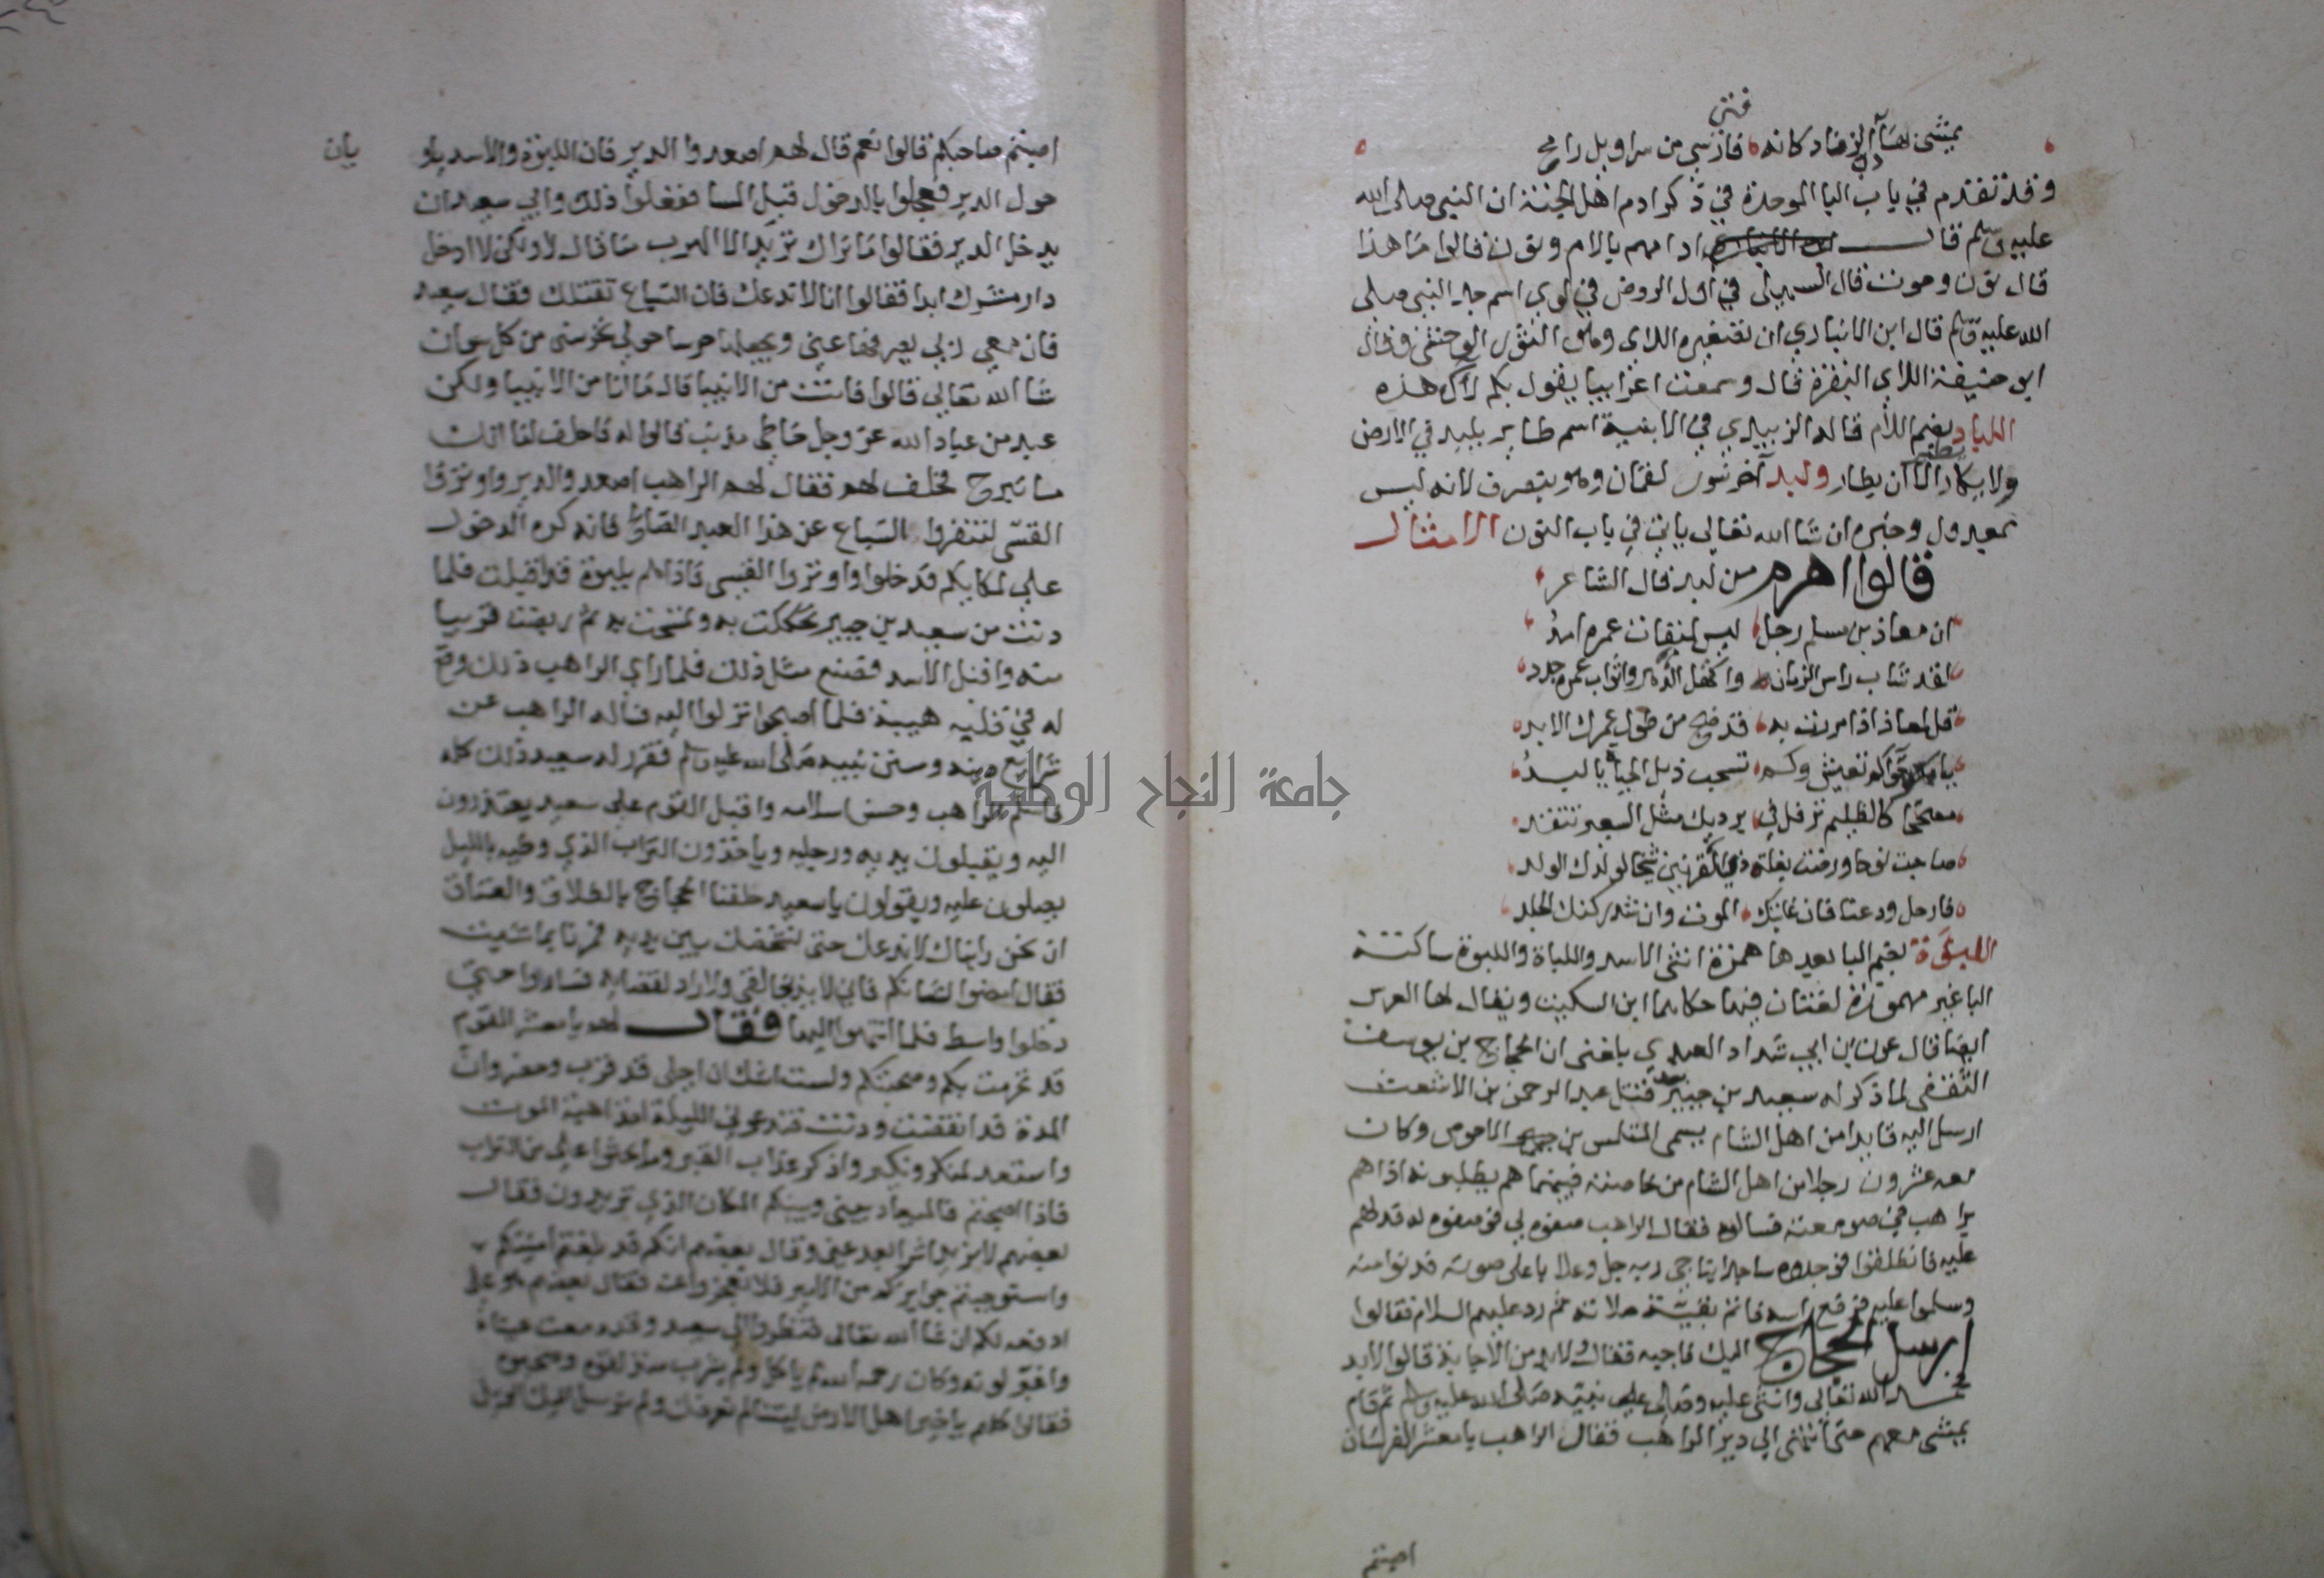 فتى
يمشى بها الزماد كانه فارسي من سراويل رامح
وقد تقدم في باب البا الموحدة في ذكر ادم اهل الجنة ان النبي صلى الله
عليه وسلم قال ادامهم بالام ونون قالوا ما هذا
قال نون وحوت قال السهيلى في اول الروض في لوي اسم جد النبي صلى
الله عليه وسلم قال ابن الانباري ان تصغيره اللاي وهو الثور الوحشى وقال
ابو حنيفة اللاي البقرة قال وسمعت اعرابيا يقول بكم لاك هذه
اللباد بضم اللام قاله الزبيدي في الابنية اسم طاير يلبد في الارض
ولا يكاد يطير الا ان يطار ولبد آخر نسور لقمان وهو ينصرف لانه ليس
بمعدول وخبره ان شا الله تعالى ياتى في باب النون الامثال
قالوا اهرم من لبد قال الشاعر
ان معاذ بن مسلم رجل ليس لميقات عمره امد
قد شاب راس الزمان واكتهل الدهر واثواب عمره جدد
قل لمعاذ اذا مررت به قد ضج من طول عمرك الابد
يا بكر حوا كم تعيش وكم تسحب ذيل الحياة يا لبد
مصححا كالظليم ترفل في برديك مثل السعير تتقد
صاحبت نوحا ورضت بغلة ذي القرنين شيخا لولدك الولد
فارحل ودعنا فان غايتك الموت وان شد ركنك الجلد
اللبوة بضم البا بعدها همزة انثى الاسد واللباة واللبوة ساكنة
البا غير مهموزة لغتان فيها حكاهما ابن السكيت ويقال لها العرس
ايضا قال عون بن ابي شداد العبدي بلغنى ان الحجاج بن يوسف
الثقفى لما ذكر له سعيد بن جبير بعد قتل عبد الرحمن بن الاشعث
ارسل اليه قايدا من اهل الشام يسمى المتلمس بن الاحوص وكان
معه عشرون رجلا من اهل الشام من خاصته فبينما هم يطلبونه اذا هم
براهب في صومعته فسالوه فقال الراهب صفوه لي فوصفوه له فدلهم
عليه فانطلقوا فوجدوه ساجدا يناجى ربه جل وعلا باعلى صوته فدنوا منه
وسلموا عليه فرفع راسه فاتم بقية صلاته ثم رد عليهم السلام فقالوا
ارسل الحجاج اليك فاجبه فقال ولا بد من الاجابة قالوا لابد
فحمد الله تعالى واثنى عليه وصلى على نبيه صلى الله عليه وسلم ثم قام
يمشى معهم حتى انتهى الى دير الراهب فقال الراهب يا معشر الفرسان
اصبتم
اصبتم صاحبكم قالوا نعم قال لهم اصعدوا الدير فان اللبوة والاسد ياو
يان
حول الدير فعجلوا بالدخول قبل المسا ففعلوا ذلك وابى سعيد ان
يدخل الدير فقالوا ما نراك تريد الا الهرب منا قال لا ولكن لا ادخل
دار مشرك ابدا فقالوا انا لا ندعك فان السباع تقتلك فقال سعيد
فان معي ربي يصرفها عنى ويجعلها حرسا حولي تحرسنى من كل سو ان
شا الله تعالى قالوا فانت من الانبيا قال ما انا من الانبيا ولكن
عبد من عباد الله عز وجل خاطى مذنب قالوا له فاحلف لنا انك
ما تبرح فحلف لهم فقال لهم الراهب اصعدوا الدير واوتروا
القسى لتنفروا السباع عن هذا العبد الصالح فانه كره الدخول
على لمكانكم فدخلوا واوتروا القسى فاذا هم بلبوة قد اقبلت فلما
دنت من سعيد بن جبير تحككت به وتمسحت به ثم ربضت قريبا
منه واقبل الاسد فصنع مثل ذلك فلما راي الراهب ذلك وقع
له في قلبه هيبة فلما اصبحوا نزلوا اليه فساله الراهب عن
شرايع دينه وسنن نبيه صلى الله عليه وسلم فقرر له سعيد ذلك كله
فاسلم الراهب وحسن اسلامه واقبل القوم على سعيد يعتذرون
اليه ويقبلون يديه ورجليه وياخذون التراب الذي وطيه بالليل
يصلون عليه ويقولون يا سعيد حلفنا الحجاج بالطلاق والعتاق
ان نحن رايناك لا ندعك حتى نشخصك بين يديه فمرنا بما شيت
فقال امضوا لشانكم فاني لايذ بخالقى ولا راد لقضايه فساروا حتى
دخلوا واسط فلما انتهوا اليها فقال لهم يا معشر القوم
قد تحرمت بكم وصحبتكم ولست اشك ان اجلى قد قرب وحضر وان
المدة قد انقضت ودنت فدعوني الليلة اخذ اهبة الموت
واستعد لمنكر ونكير واذكر عذاب القبر وما يحثوا علي من التراب
فاذا اصبحتم فالميعاد بينى وبينكم المكان الذي تريدون فقال
بعضهم لا نريد اثرا بعد عين وقال بعضهم انكم قد بلغتم امنيتكم
واستوجبتم جوايزكم من الامير فلا تعجزوا عنه فقال بعضهم هو على
ادفعه لكم ان شا الله تعالى فنظروا الى سعيد وقد دمعت عيناه
واغبر لونه وكان رحمه الله لم ياكل ولم يشرب منذ لقوه وصحبوه
فقالوا كلهم يا خير اهل الارض ليتنا لم نعرفك ولم نرسل اليك الويل
جامعة النجاح الوطنية